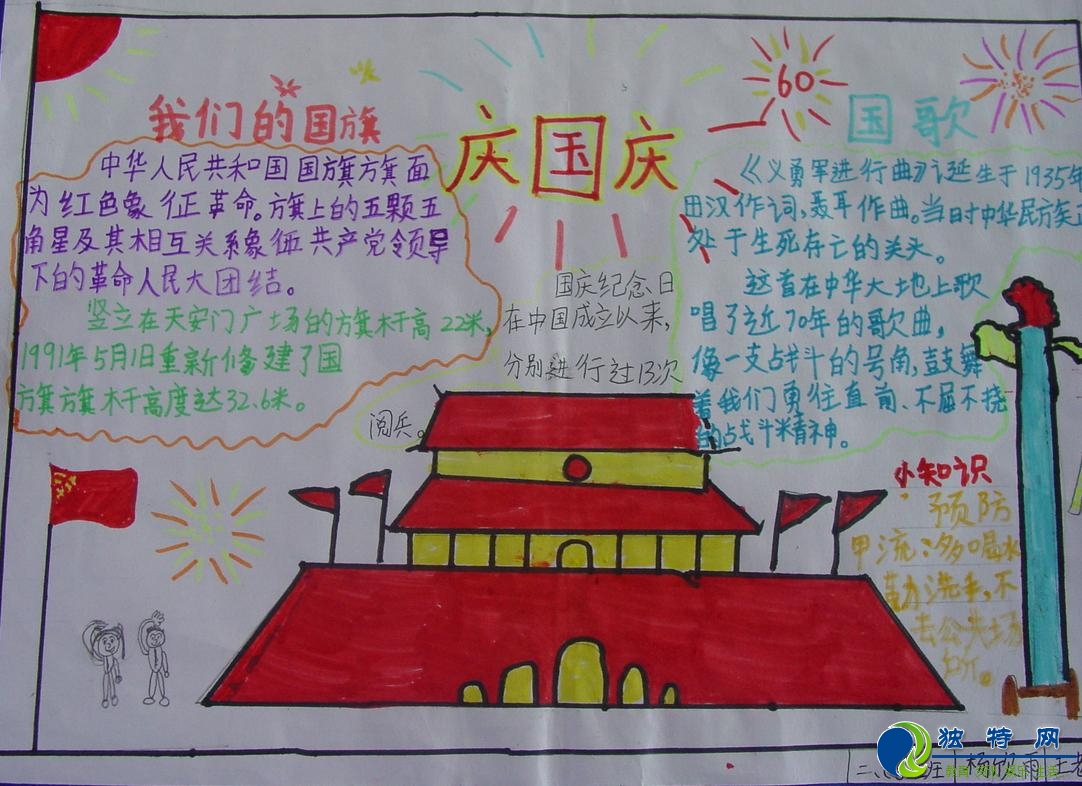 我们的国旗
中华人民共和国国旗旗面
为红色象征革命。旗上的五颗五
角星及其相互关系象征共产党领导
下的革命人民大团结。
竖立在天安门广场的旗杆高22米,
1991年5月1日重新修建了国
旗旗杆高度达32.6米。
庆国庆
60
国庆纪念日
在中国成立以来,
分别进行过13次
阅兵。
国歌
《义勇军进行曲》诞生于1935年
田汉作词,聂耳作曲。当时中华民族正
处于生死存亡的关头。
这首在中华大地上歌
唱了近70年的歌曲,
像一支战斗的号角,鼓舞
着我们勇往直前、不屈不挠
的战斗精神。
小知识
预防
甲流:多喝水
勤洗手,不
去公共场
所。
独特网
杨欣雨